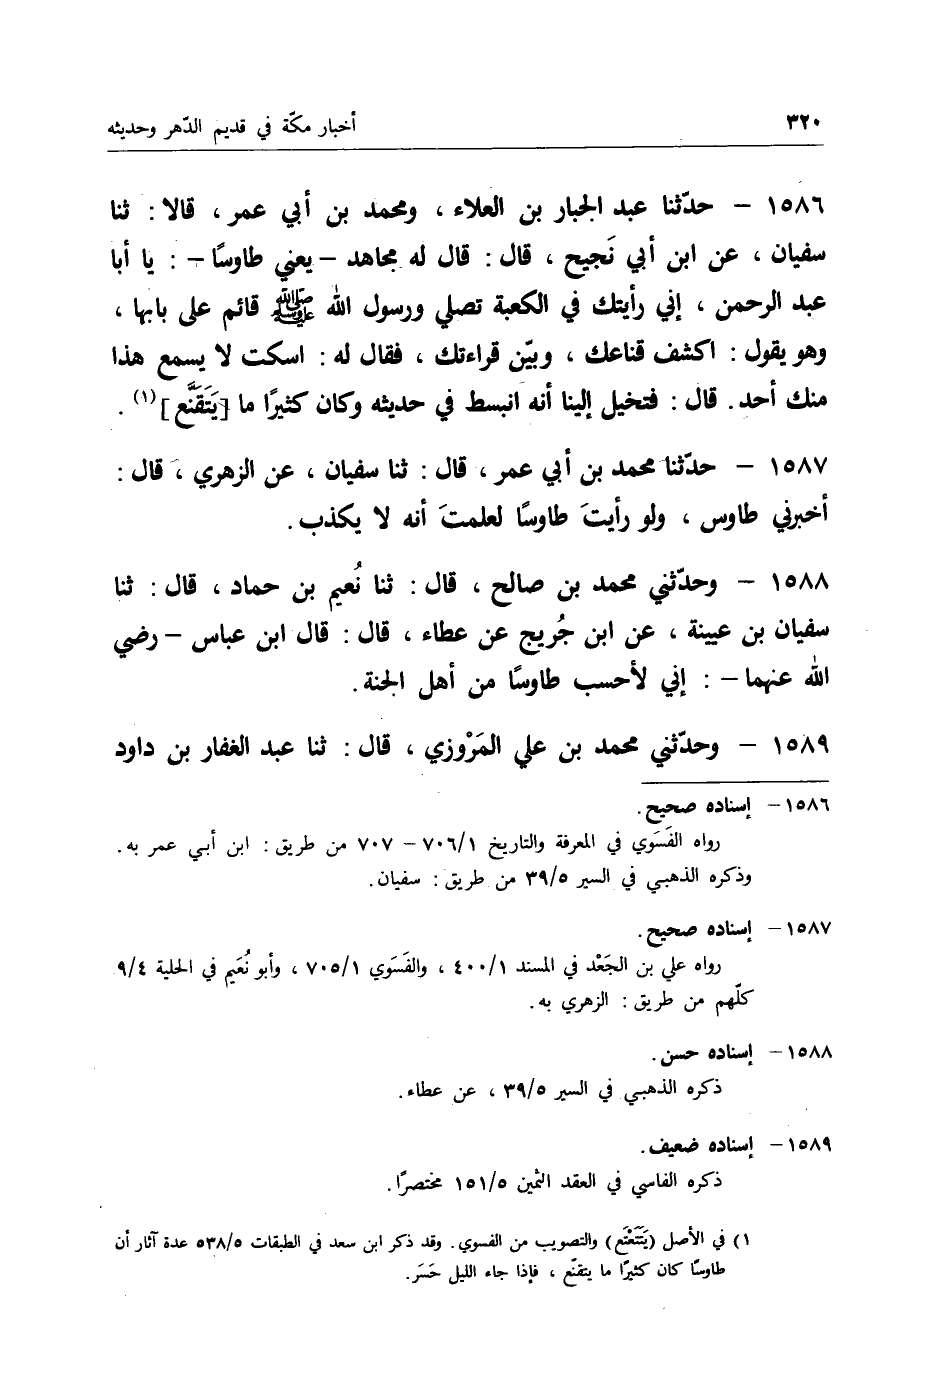 ٣٢٠
أخبار مكّة في قديم الدّهر وحديثه
١٥٨٦ – حدّثنا عبد الجبار بن العلاء ، ومحمد بن أبي عمر ، قالا : ثنا
سفيان ، عن ابن أبي نَجيح ، قال : قال له مجاهد – يعني طاوسًا – : يا أبا
عبد الرحمن ، إني رأيتك في الكعبة تصلي ورسول الله ﷺ قائم على بابها ،
وهو يقول : اكشف قناعك ، وبيّن قراءتك ، فقال له : اسكت لا يسمع هذا
منك أحد. قال : فتخيل إلينا أنه انبسط في حديثه وكان كثيرًا ما [يَتَقَنَّع](١) .
١٥٨٧ – حدّثنا محمد بن أبي عمر ، قال : ثنا سفيان ، عن الزهري ، قال :
أخبرني طاوس ، ولو رأيتَ طاوسًا لعلمتَ أنه لا يكذب.
١٥٨٨ – وحدّثني محمد بن صالح ، قال : ثنا نُعيم بن حماد ، قال : ثنا
سفيان بن عيينة ، عن ابن جُريج عن عطاء ، قال : قال ابن عباس – رضي
الله عنهما – : إني لأحسب طاوسًا من أهل الجنة.
١٥٨٩ – وحدّثني محمد بن علي المَرْوزي ، قال : ثنا عبد الغفار بن داود
١٥٨٦ – إسناده صحيح.
رواه الفَسَوي في المعرفة والتاريخ ٧٠٦/١ – ٧٠٧ من طريق : ابن أبي عمر به.
وذكره الذهبي في السير ٣٩/٥ من طريق : سفيان.
١٥٨٧ – إسناده صحيح.
رواه علي بن الجَعْد في المسند ٤٠٠/١ ، والفَسَوي ٧٠٥/١ ، وأبو نُعَيم في الحلية ٩/٤
كلّهم من طريق : الزهري به.
١٥٨٨ – إسناده حسن.
ذكره الذهبي في السير ٣٩/٥ ، عن عطاء.
١٥٨٩ – إسناده ضعيف.
ذكره الفاسي في العقد الثمين ١٥١/٥ مختصرًا.
١) في الأصل (يَتَتَعْنَع) والتصويب من الفسوي. وقد ذكر ابن سعد في الطبقات ٥٣٨/٥ عدة آثار أن
طاوسًا كان كثيرًا ما يتقنّع ، فإذا جاء الليل حَسَر.